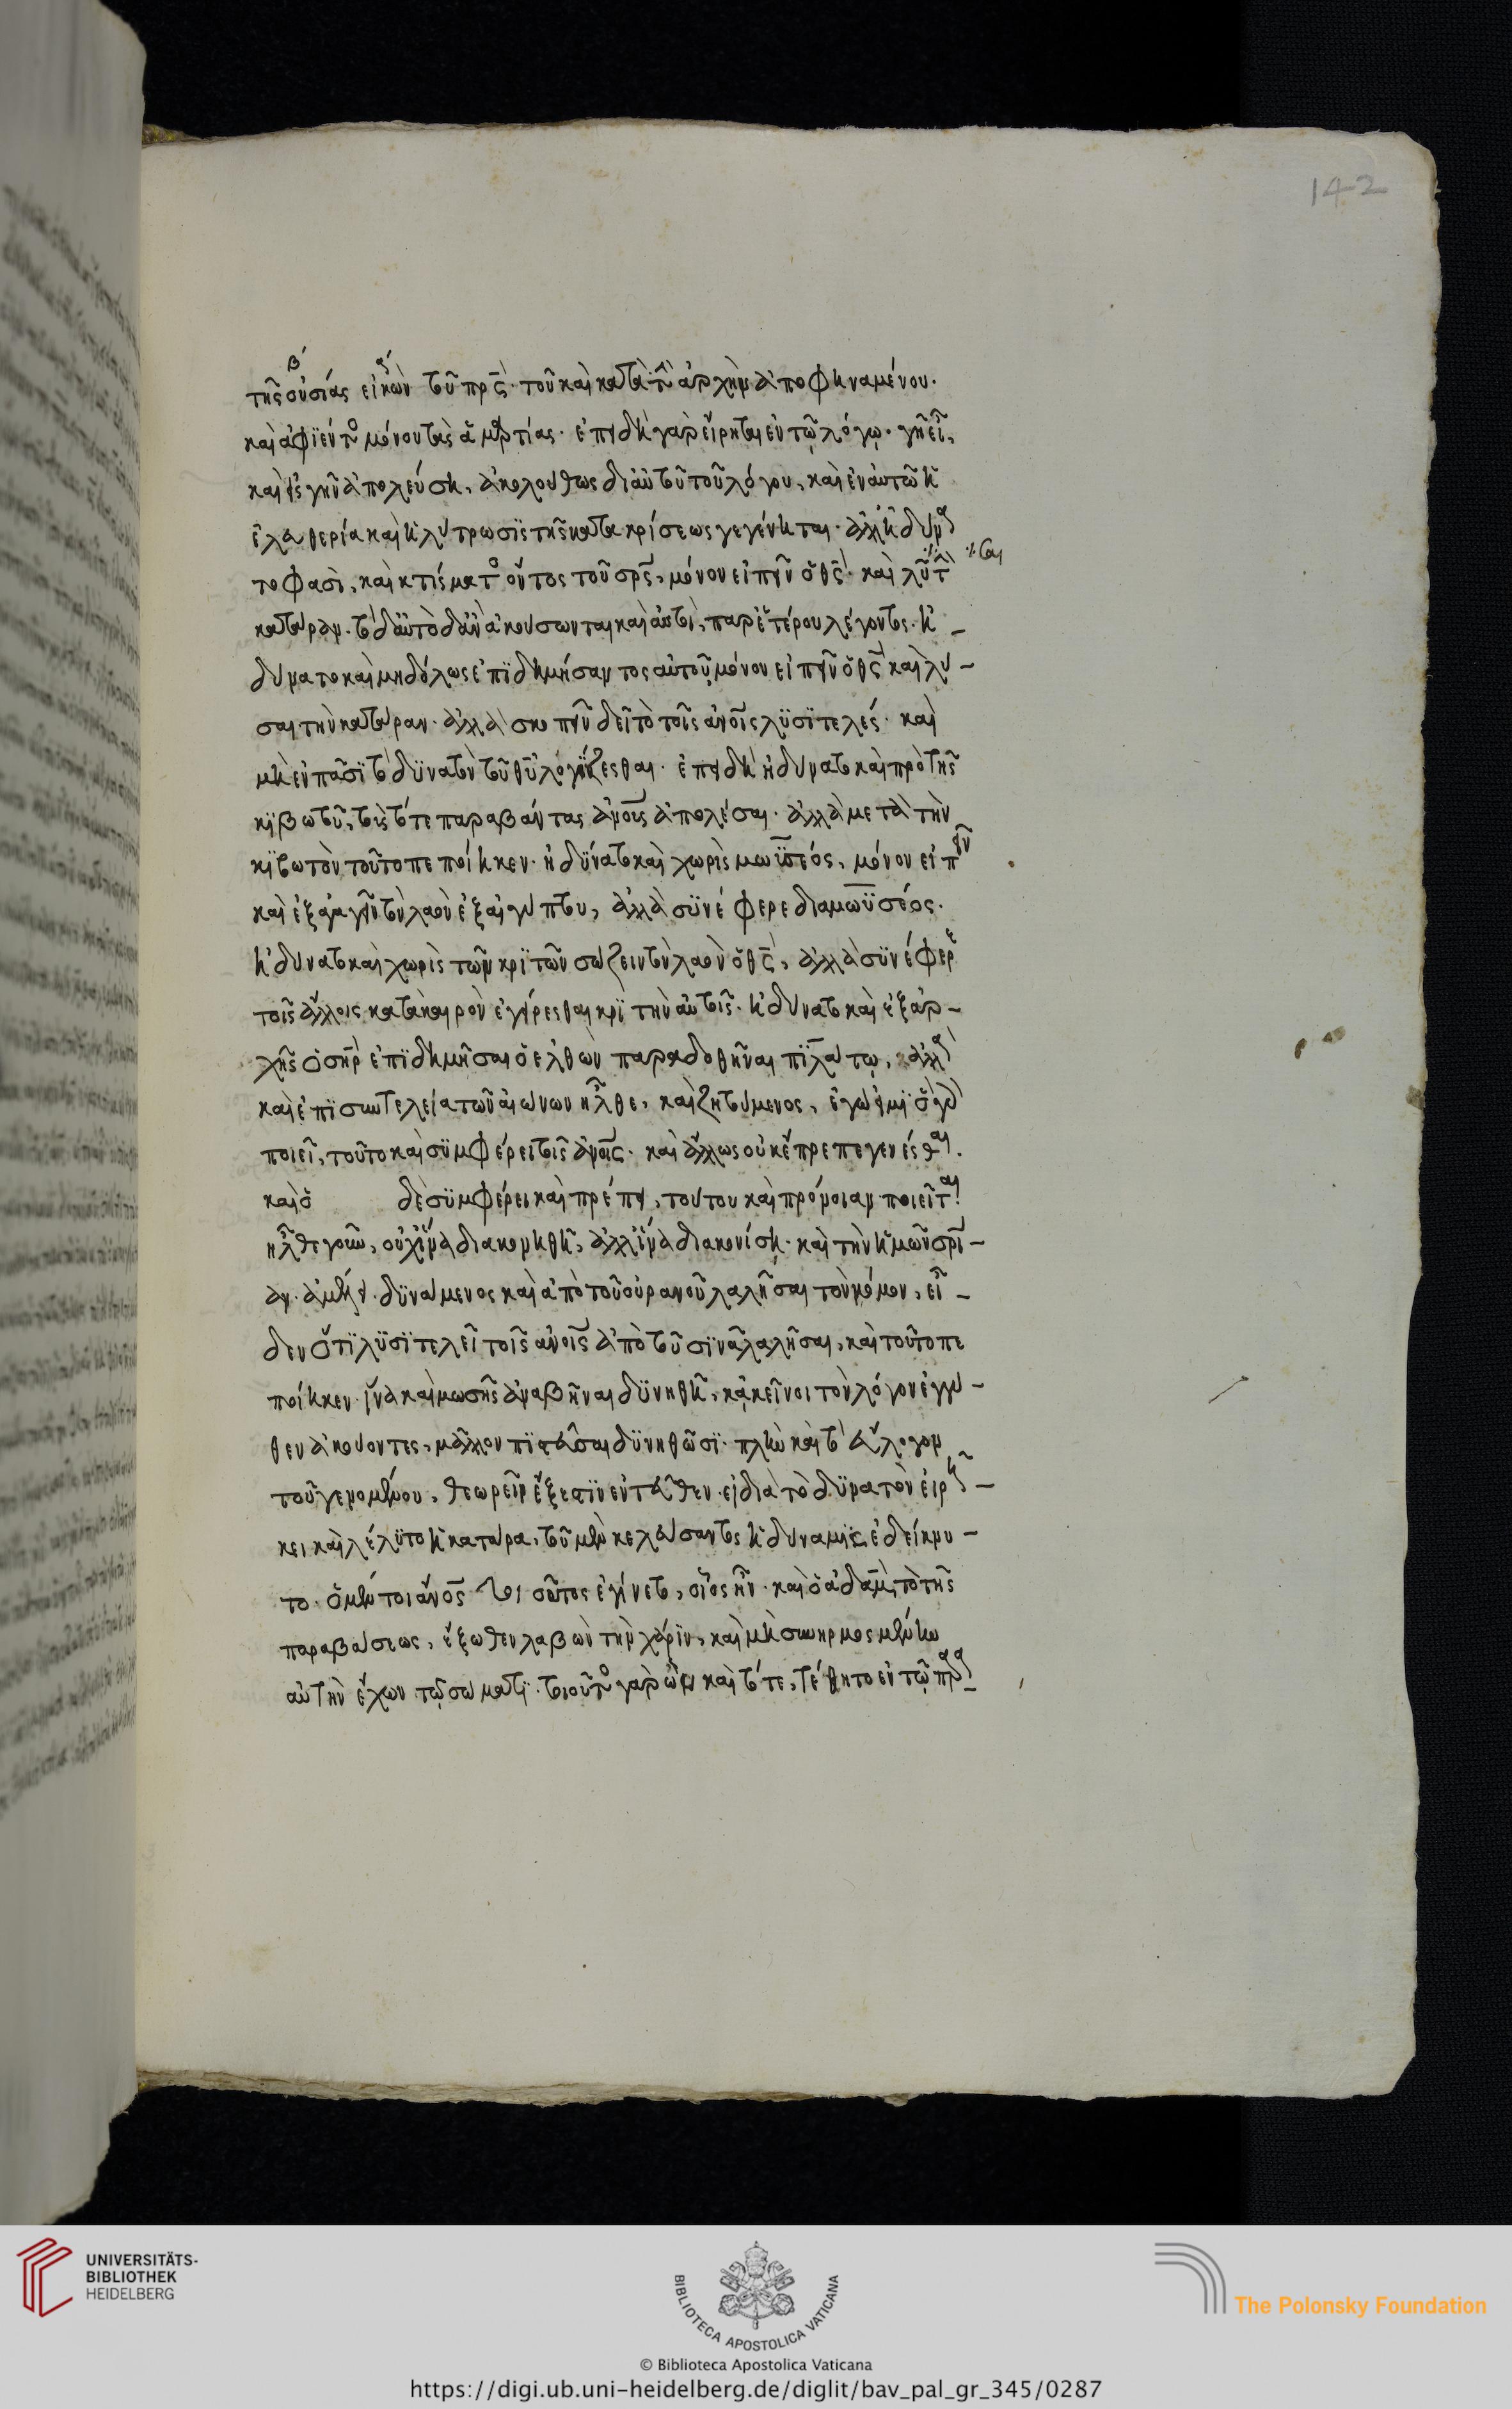 142
β´ α´
τῆς οὐσίας εἰκὼν τοῦ πρς̄· τοῦ καὶ κατὰ τὴν ἀρχὴν ἀποφηναμένου·
καὶ ἀφϊέντος μόνου τὰς ἁμαρτίας· ἐπειδὴ γὰρ εἴρηται ἐν τῷ λόγῳ· γῆ εἶ,
καὶ εἰς γῆν ἀπελεύση, ἀκολούθως δι αὐτοῦ τοῦ λόγου, καὶ ἐν αὐτῶ ἡ
ἐλευθερία καὶ ἡ λύτρωσϊς τῆς κατακρίσεως γεγένηται· ἀλλ' ἠδύνα
το φασὶ, καὶ κτίσματος ὄντος τοῦ σρς̄, μόνον εἰπεῖν ὁ θς̄· καὶ λῦσαι τὴν
κατάραν· τὸ δ' αὐτὸ δ' ἂν ἀκούσωνται καὶ αὐτοὶ, παρ' ἑτέρου λέγοντος· ἠ–
δύνατο καὶ μηδόλως ἐπϊδημήσαντος αὐτοῦ, μόνον εἰπεῖν ὁ θς̄ καὶ λύ–
σαι τὴν κατάραν· ἀλλὰ σκοπεῖν δεῖ τὸ τοῖς ἀνοις λϋσϊτελές· καὶ
μὴ ἐν πᾶσϊ τὸ δϋνατὸν τοῦ θῡ λογίζεσθαι· ἐπειδὴ ἠδύνατο καὶ πρὸ τῆς
κϊβωτοῦ, τοὺς τότε παραβάντας ἀνους ἀπολέσαι· ἀλλὰ μετὰ τὴν
κϊβωτὸν τοῦτο πεποίηκεν· ἠδϋνατο καὶ χωρὶς μωϋσέος, μόνον εἰπεῖν
καὶ ἐξαγαγεῖν τὸν λαὸν ἐξ αἰγύπτου, ἀλλὰ σϋνέφερε διὰ μωϋσέος·
ἠδύνατο καὶ χωρὶς τῶν κρϊτῶν σώζειν τὸν λαὸν ὁ θς̄, ἀλλὰ σϋνέφερε
τοῖς ἄλλοις κατὰ καιρὸν ἐγείρεσθαι κρϊτὴν αὐτοῖς· ἠδύνατο καὶ ἐξ ἀρ–
χῆς ὁ σηρ̄ ἐπϊδημῆσαι ὁ ἐλθὼν παραδοθῆναι πϊλάτῳ, ἀλλὰ
καὶ ἐπϊ σιωτελεία τῶν αἰώνων ἦλθε, καὶ ζητούμενος, ἐγώ εἰμϊ ὃ γὰρ
ποιεῖ, τοῦτο καὶ σϋμφέρει τοῖς ἀνοις· καὶ ἄλλως οὐκ ἔπρεπε γενέσθαι.
καὶ ὃ δὲ σϋμφέρει καὶ πρέπει, τούτου καὶ πρόνοιαν ποιεῖται·
ἦλθε γοῦν, οὐχ ἵνα διακονηθῆ, ἀλλ' ἵνα διακονίση· καὶ τὴν ἡμῶν σρϊ–
αν· ἀμέλει· δϋνάμενος καὶ ἀπὸ τοῦ οὐρανοῦ λαλῆσαι τὸν νόμον, εἶ–
δεν ὅτϊ λϋσϊτελεῖ τοῖς ἀνοις ἀπὸ τοῦ σϊνᾶ λαλῆσαι, καὶ τοῦτο πε
ποίηκεν· ἵνα καὶ μωσῆς ἀναβῆναι δϋνηθῆ, κἀκεῖνοι τὸν λόγον ἐγγύ–
θεν ἀκούοντες, μᾶλλον πϊστεῦσαι δϋνηθῶσϊ· πλὴν καὶ τὸ εὔλογον
τοῦ γενομένου, θεωρεῖν ἔξεστϊν ἐντεῦθεν· εἰ διὰ τὸ δϋνατὸν εἰρή–
κει καὶ λέλϋτο ἡ κατάρα, τοῦ μὲν κελεύσαντος ἡ δύναμϊς ἐδείκνυ–
το· ὁ μέντοι ἄνος τοιοῦτος ἐγίνετο, οἷος ἦν· καὶ ὁ ἀδὰμ, πρὸ τῆς
παραβάσεως, ἔξωθεν λαβὼν τὴν χάρϊν, καὶ μὴ σιωηρμοσμένην
αὐτὴν ἔχων τῷ σώματϊ· τοιοῦτος γὰρ ὢν καὶ τότε, τέθητο ἐν τῷ παρα
UNIVERSITÄTS-
BIBLIOTHEK
HEIDELBERG
BIBLIOTECA APOSTOLICA VATICANA
The Polonsky Foundation
© Biblioteca Apostolica Vaticana
https://digi.ub.uni-heidelberg.de/diglit/bav_pal_gr_345/0287